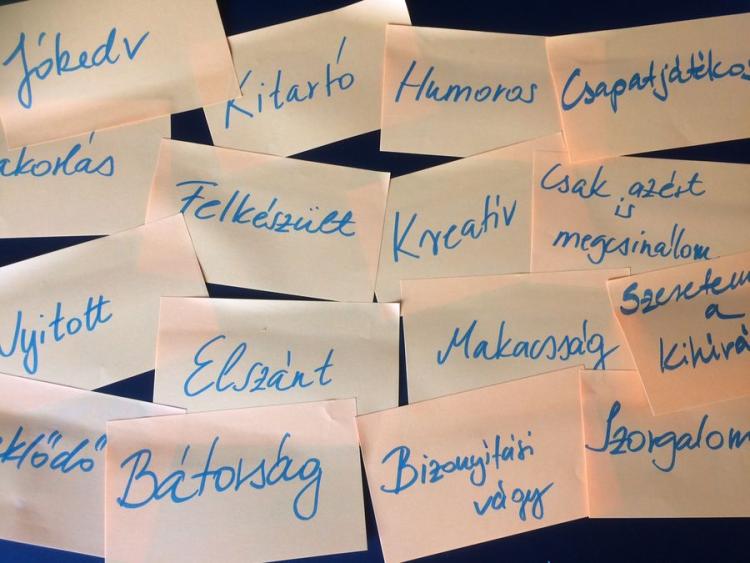 Jókedv
Kitartó
Humoros
Csapatjátékos
akorlás
Felkészült
Kreatív
Csak azért
is
megcsinálom
Nyitott
Elszánt
Makacsság
Szeretem
a
kihívá
eklődő
Bátorság
Bizonyítási
vágy
Szorgalom